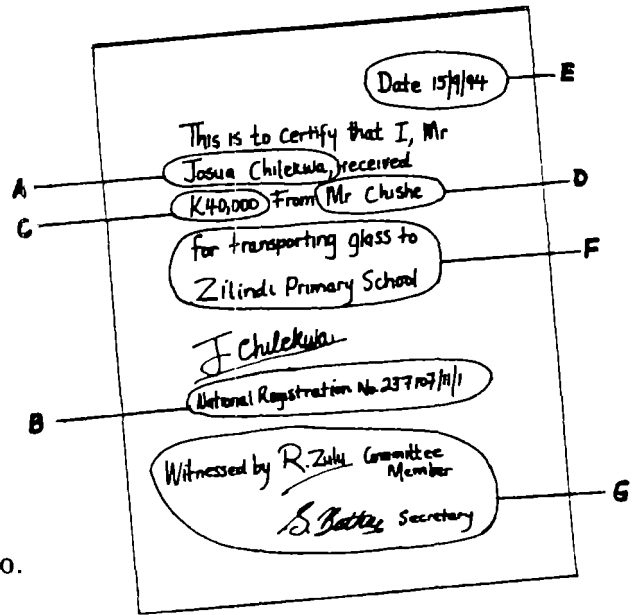 Date 15/9/94
E
This is to certify that I, Mr
A
Josua Chilekwa, received
C
K40,000 From Mr Chishe
D
for transporting glass to
Zilindi Primary School
F
J Chilekwa
B
National Registration No. 237107/11/1
Witnessed by R. Zulu Committee
Member
G
S. Secretary
o.